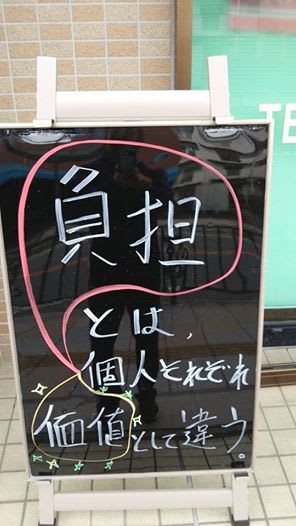 負担
とは、
個人それぞれ
価値として違う。
TE